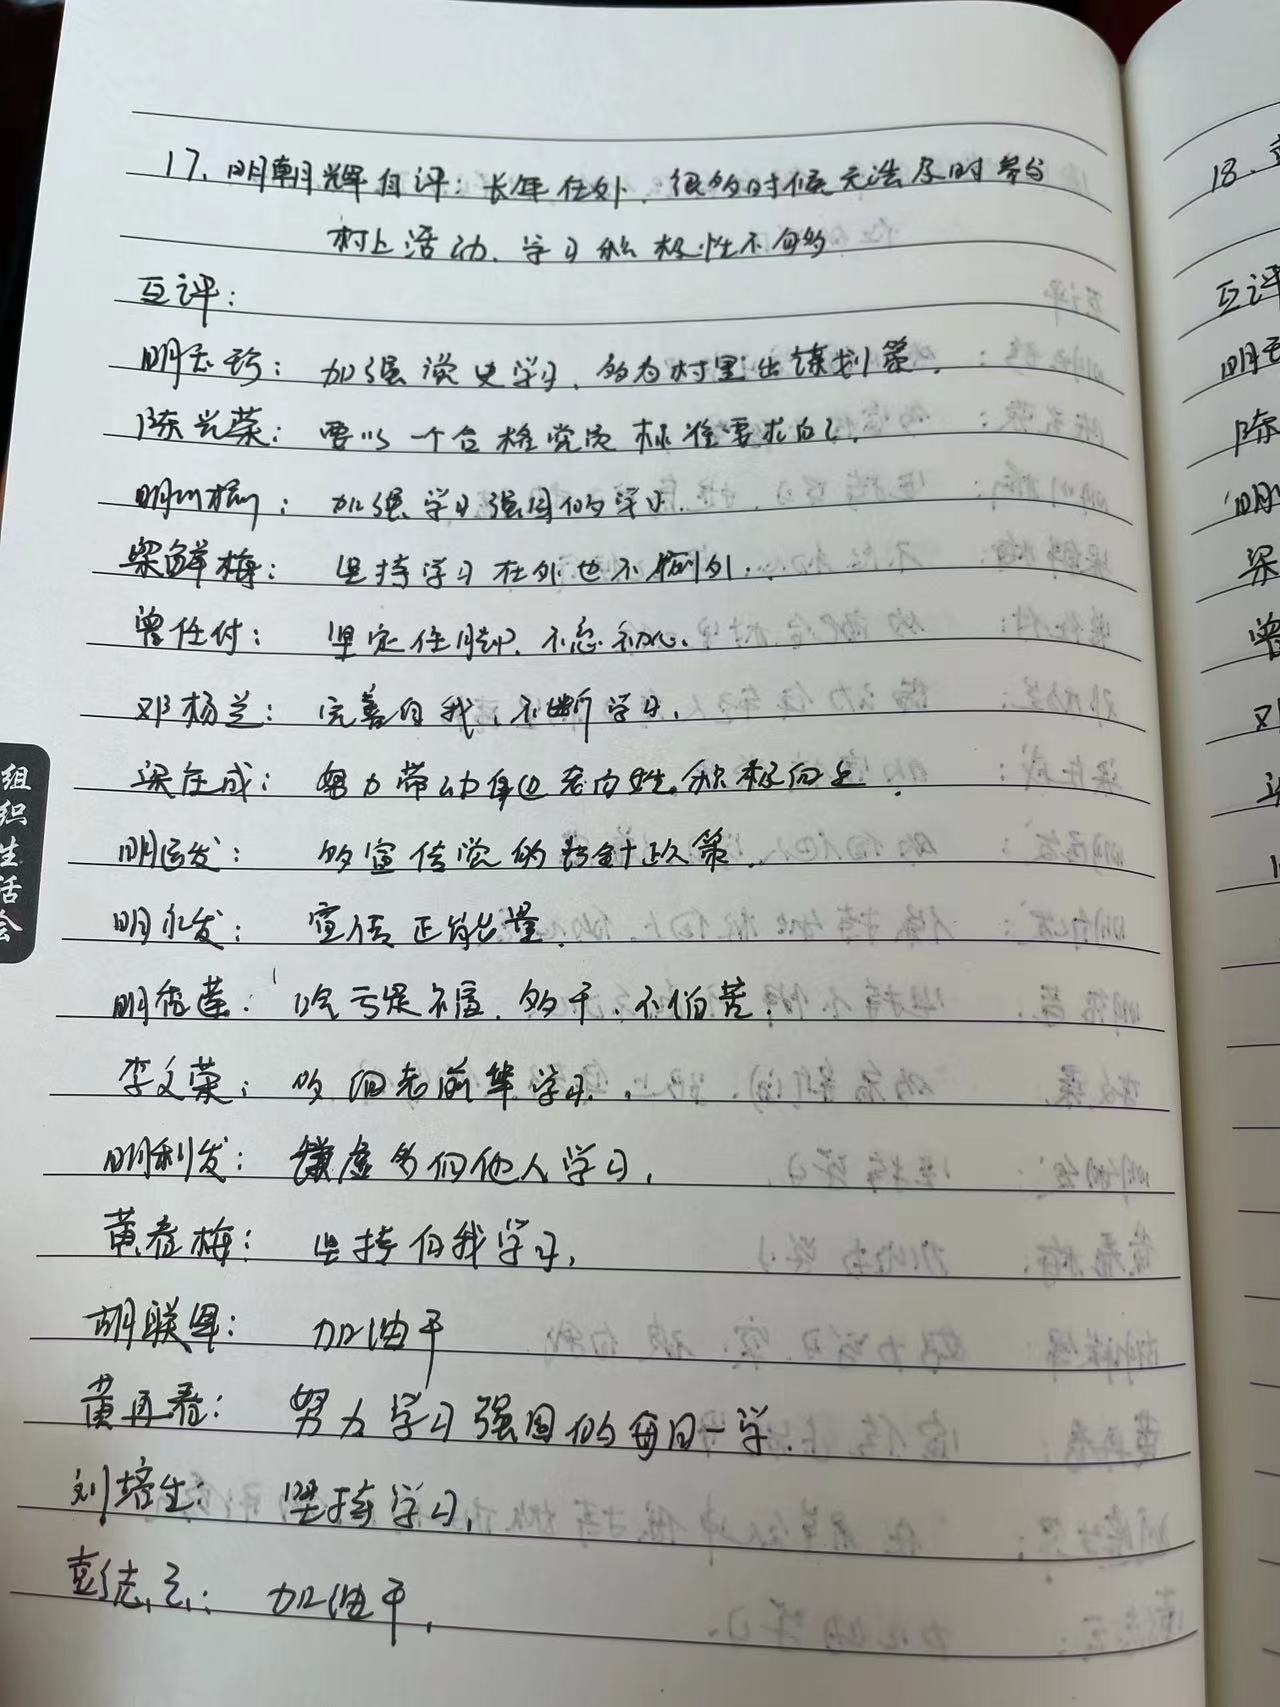 17. 明朝辉自评：长年在外，很多时候无法及时参与
村上活动、学习积极性不够
互评：
明玉珍：加强党史学习，多为村里出谋划策.
陈兴荣：要以一个合格党员标准要求自己.
明川：加强学习强国的学习.
梁鲜梅：坚持学习在外也不例外.
曾任付：坚定任脚，不忘初心.
邓杨兰：完善自我，不断学习.
梁庄成：努力带动身边老百姓积极向上.
明运发：多宣传党的方针政策.
明永发：宣传正能量.
明莲：吃亏是福，多干，不怕苦.
李文荣：多向老前辈学习.
明利发：谦虚多向他人学习.
黄春梅：坚持自我学习.
胡联军：加油干
黄再春：努力学习强国的每日一学.
刘培生：坚持学习.
彭志云：加油干.
组织生活会
18.
互评
明玉
陈
明
梁
曾
邓